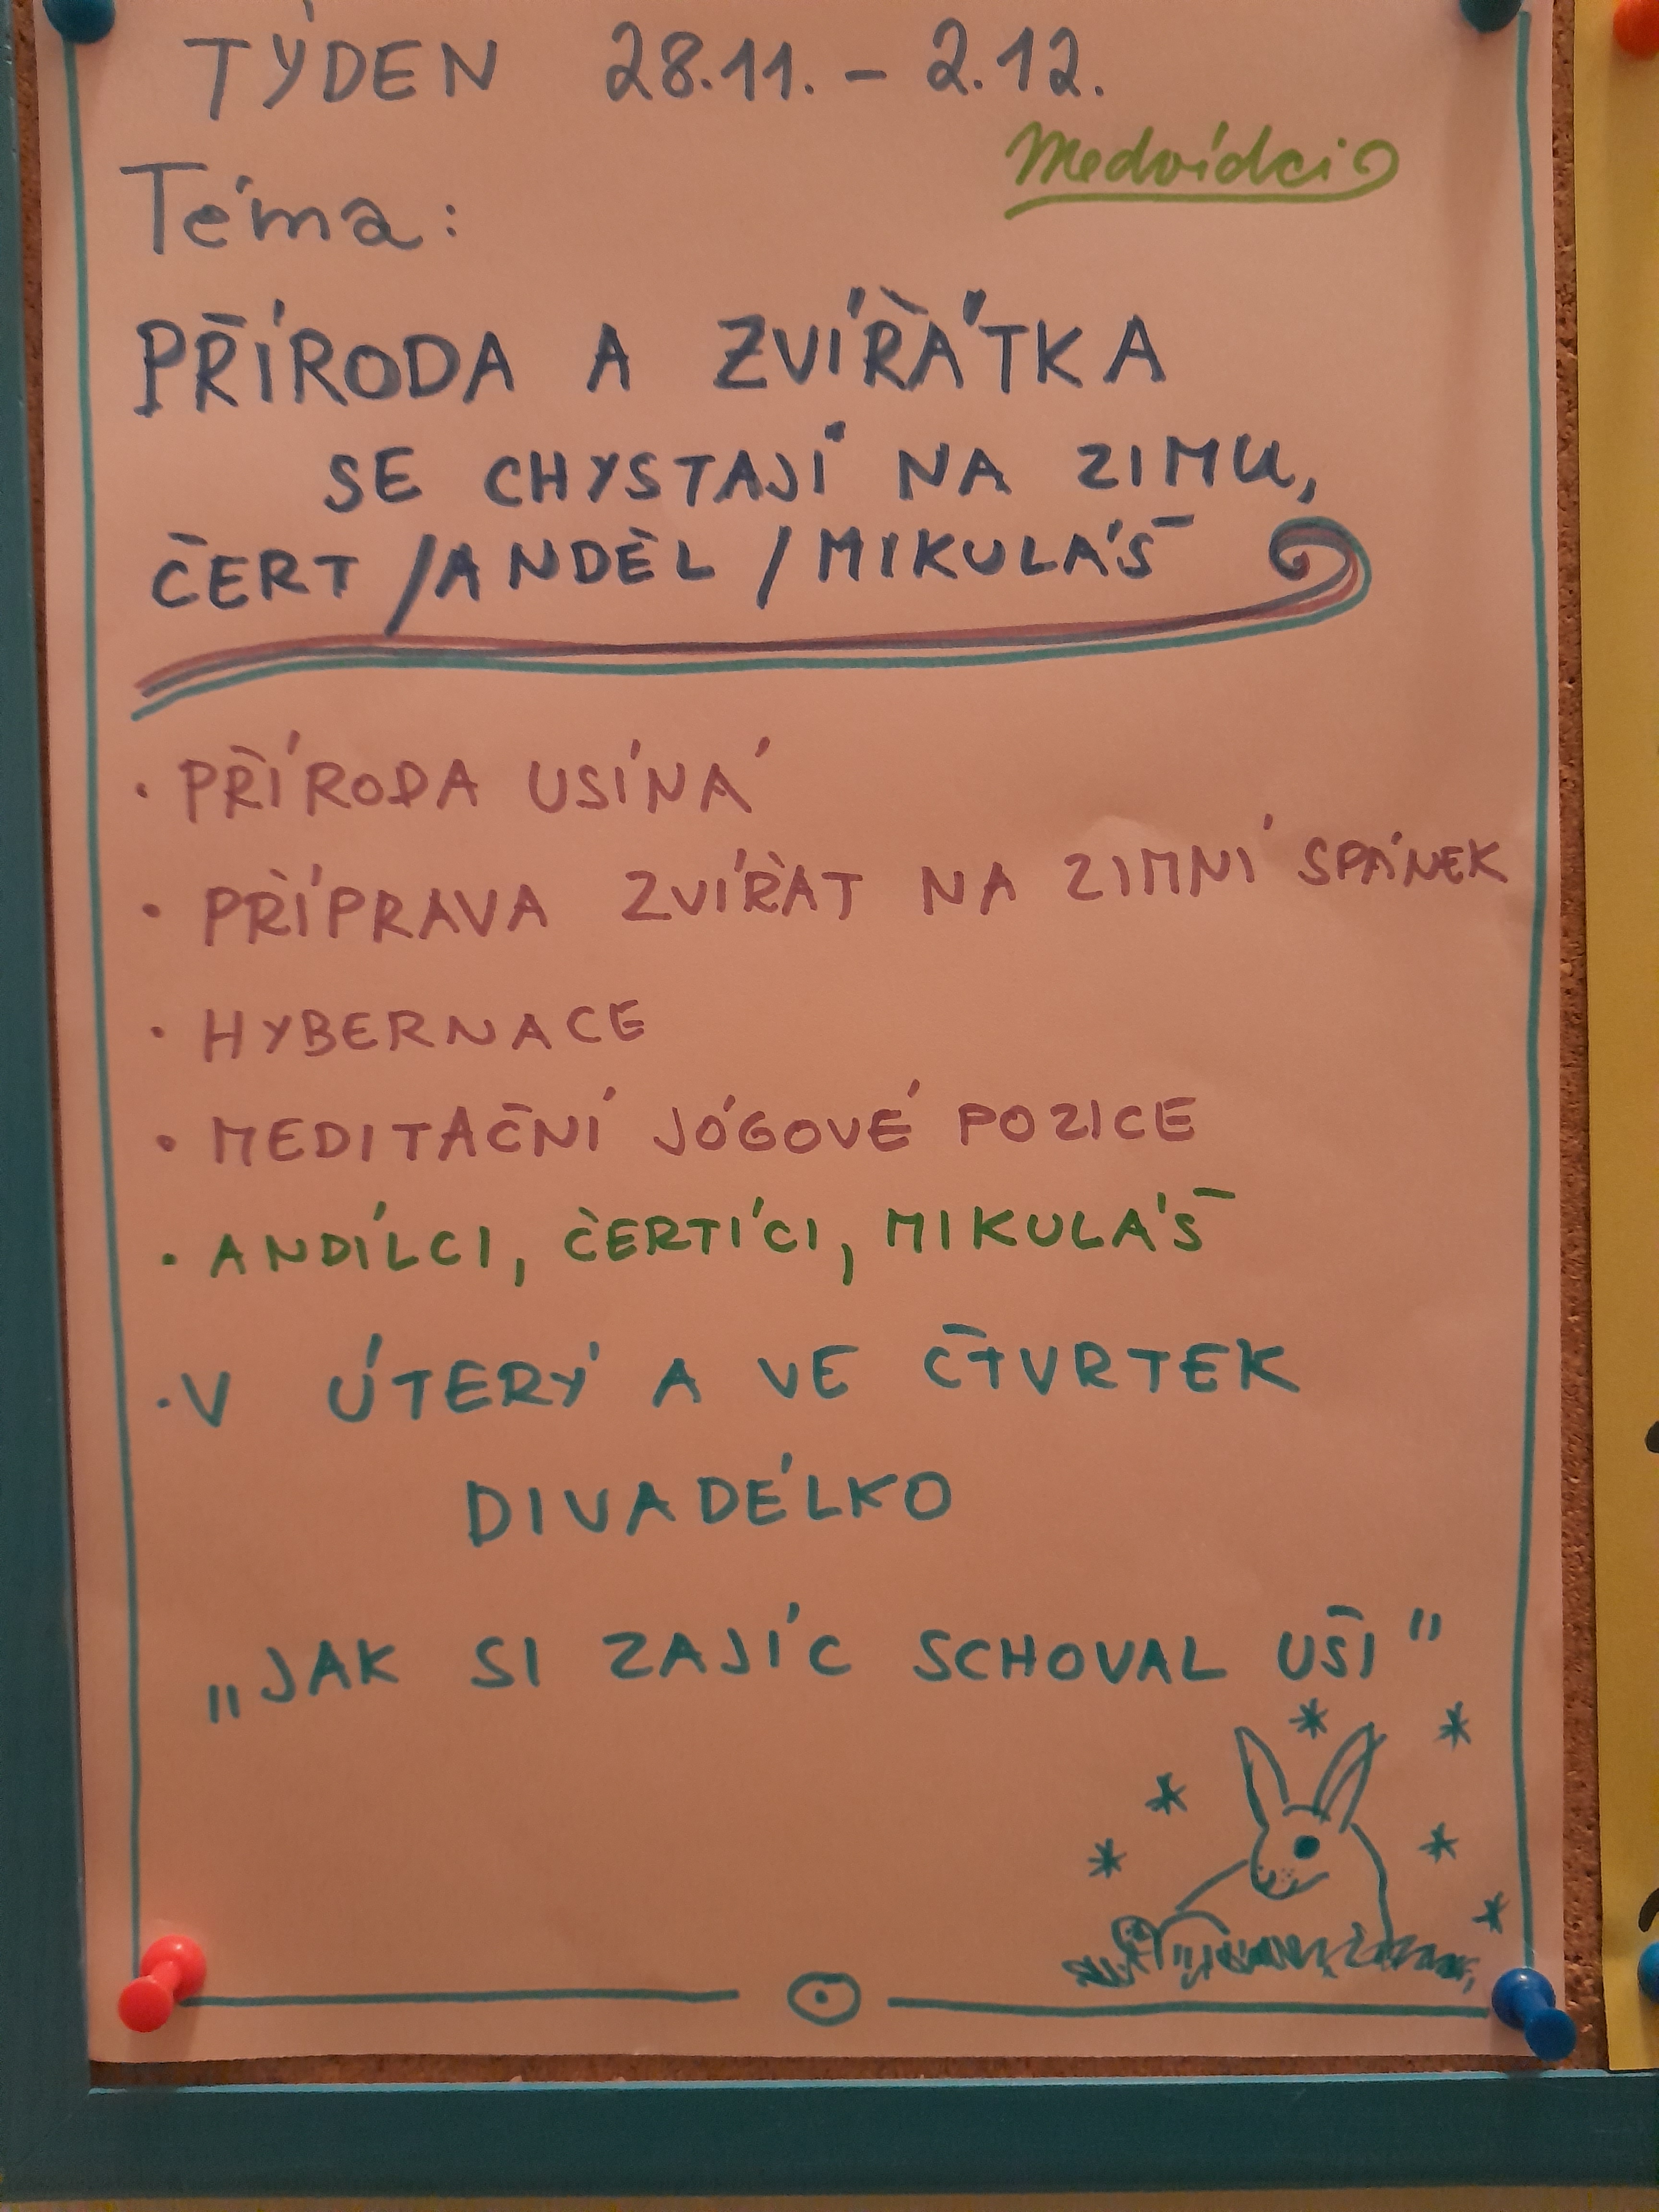 TÝDEN 28.11. – 2.12.
Medvídci
Téma:
PŘÍRODA A ZVÍŘÁTKA
SE CHYSTAJÍ NA ZIMU,
ČERT / ANDĚL / MIKULÁŠ
· PŘÍRODA USÍNÁ
· PŘÍPRAVA ZVÍŘAT NA ZIMNÍ SPÁNEK
· HYBERNACE
· MEDITAČNÍ JÓGOVÉ POZICE
· ANDÍLCI, ČERTÍCI, MIKULÁŠ
· V ÚTERÝ A VE ČTVRTEK
DIVADÉLKO
„JAK SI ZAJÍC SCHOVAL UŠI"